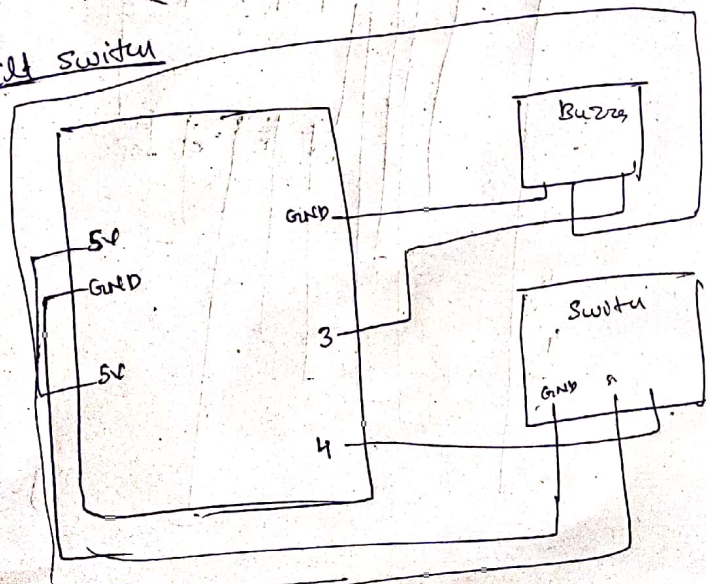 ilt switch
Buzzer
GND
5V
GND
3
5V
Switch
GND
4